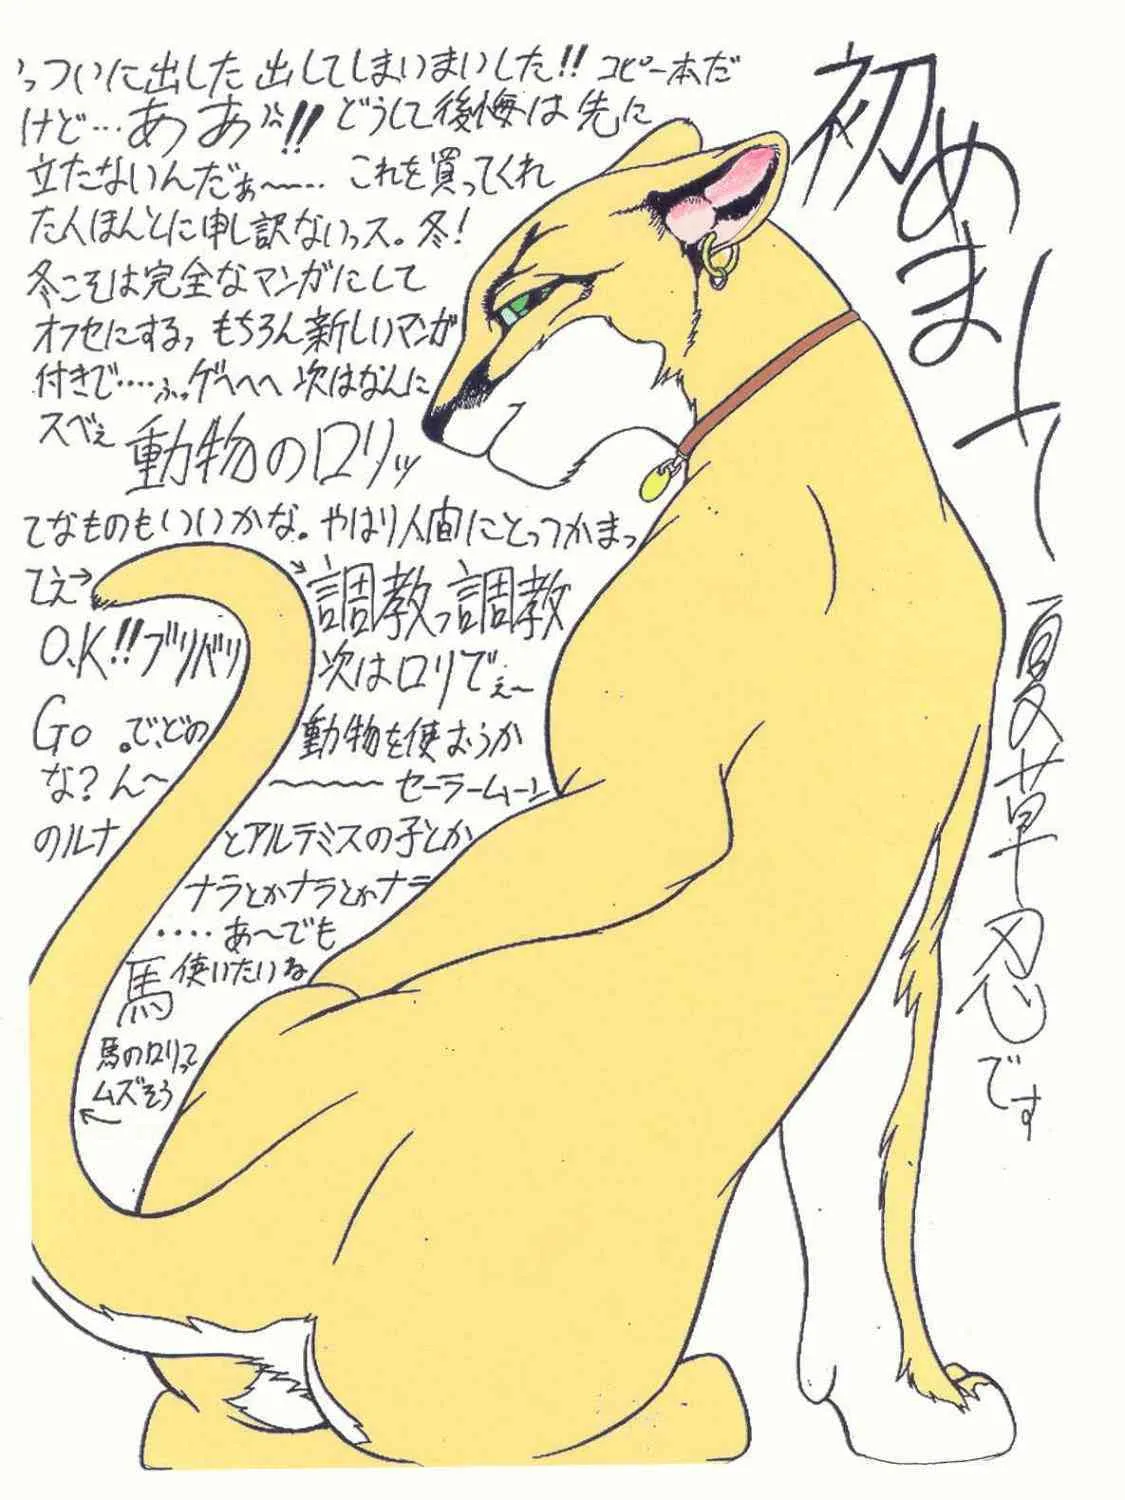 初めまして
夏草忍です
っついに出した出してしまいまいした!! コピー本だ
けど…ああ!! どうして後悔は先に
立たないんだぁ〜〜… これを買ってくれ
た人ほんとに申し訳ないっス。冬!
冬こそは完全なマンガにして
オフセにする、もちろん新しいマンガ
付きで‥‥ふっゲヘヘヘ 次はなんに
スベぇ 動物のロリッ
てなものもいいかな。やはり人間にとっつかまっ
てえ→ 調教っ調教
O.K!!ブリバリ 次はロリでぇ〜
Go 。で、どの 動物を使おうか
な?ん〜 〜〜〜〜 セーラームーン
のルナ とアルテミスの子とか
ナラとかナラとかナラ
‥‥あ〜でも
馬使いたいね
馬のロリって
ムズそう